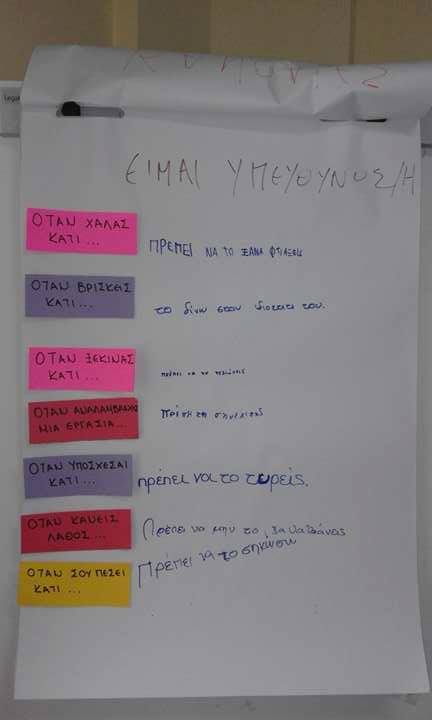 ΕΙΜΑΙ ΥΠΕΥΘΥΝΟΣ/Η
ΟΤΑΝ ΧΑΛΑΣ
ΚΑΤΙ...
ΠΡΕΠΕΙ ΝΑ ΤΟ ΞΑΝΑ ΦΤΙΑΞΕΙΣ
ΟΤΑΝ ΒΡΙΣΚΕΙΣ
ΚΑΤΙ...
το δίνω στον ιδιοκτατι του.
ΟΤΑΝ ΞΕΚΙΝΑΣ
ΚΑΤΙ...
πρέπει να το τελειώνεις
ΟΤΑΝ ΑΝΑΛΑΜΒΑΝΕΙΣ
ΜΙΑ ΕΡΓΑΣΙΑ...
ΟΤΑΝ ΥΠΟΣΧΕΣΑΙ
ΚΑΤΙ...
πρέπει να το τυρείς.
ΟΤΑΝ ΚΑΝΕΙΣ
ΛΑΘΟΣ...
Πρέπει να μην το
ΟΤΑΝ ΣΟΥ ΠΕΣΕΙ
ΚΑΤΙ...
Πρέπει να το